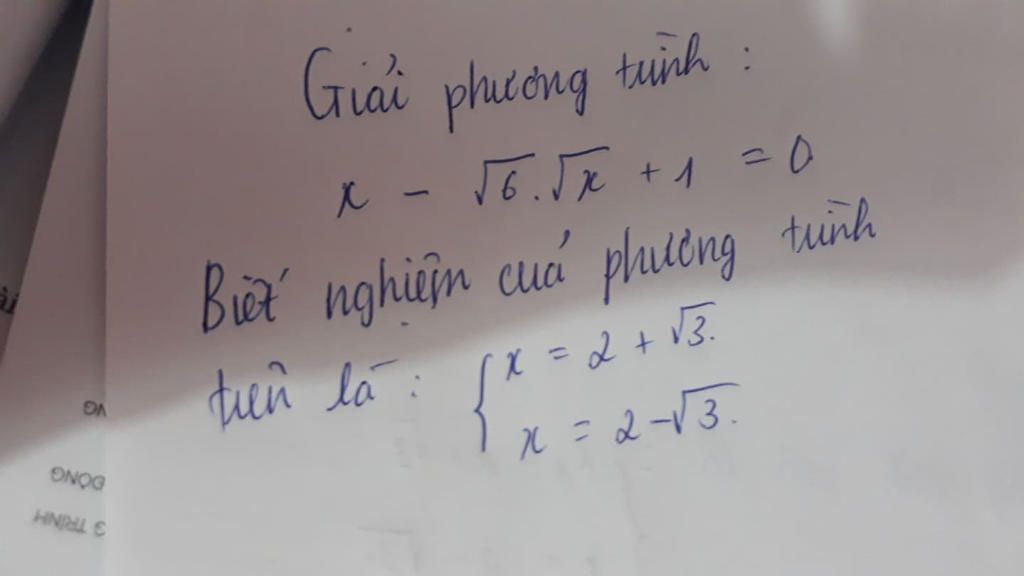 Giải phương trình :
x - √6.√x + 1 = 0
Biết nghiệm của phương trình
trên là : { x = 2 + √3.
x = 2 - √3.
ĐỘNG
G TRÌNH